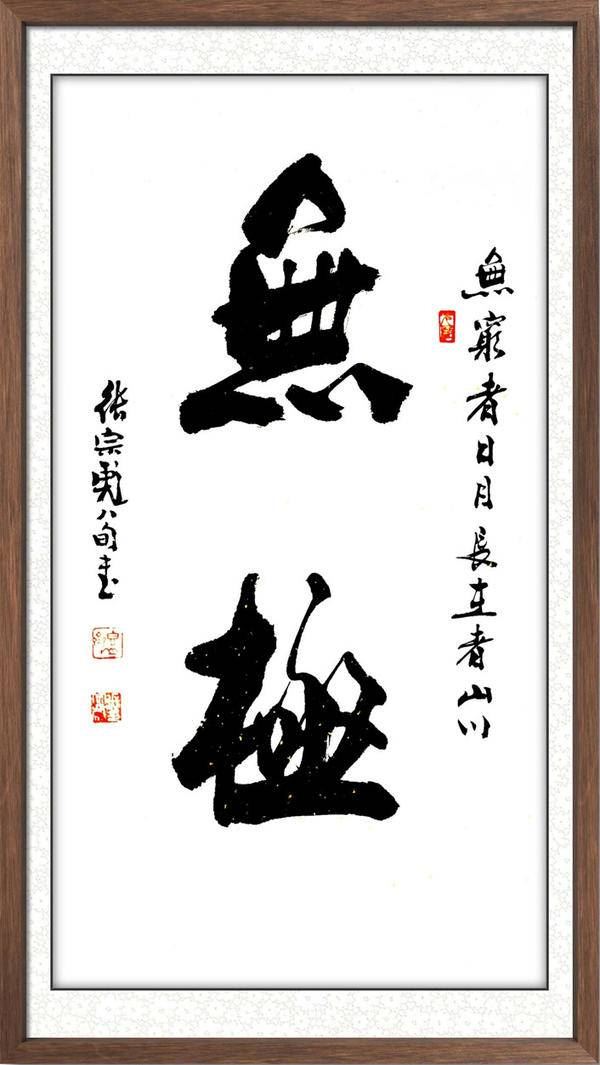 無窮者日月長在者山川
無極
張宗彪八旬書